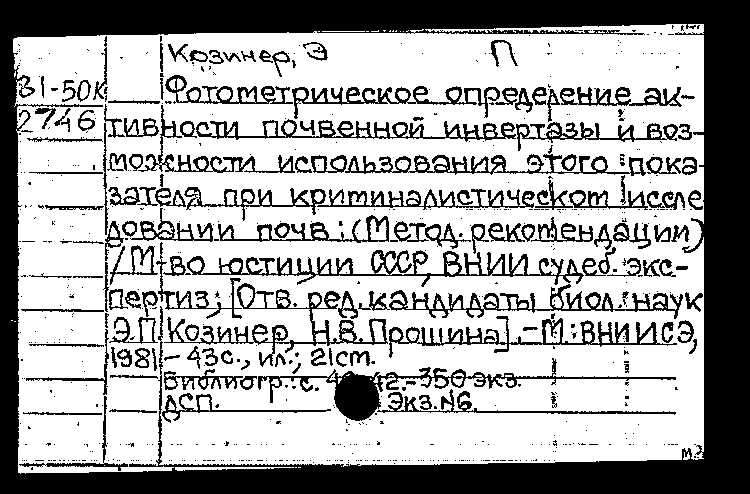 Козинер, Э П
81-50К Фотометрическое определение ак-
2746 тивности почвенной инвертазы и воз-
можности использования этого пока-
зателя при криминалистическом иссле
довании почв: (Метод. рекомендации)
/ М-во юстиции СССР, ВНИИ судеб. экс-
пертиз; [Отв. ред. кандидаты биол. наук
Э.П. Козинер, Н.В. Прошина]. - М.: ВНИИСЭ,
1981 - 43с., ил.; 21см.
Библиогр.: с. 42. - 350 экз.
ДСП. Экз. №6.